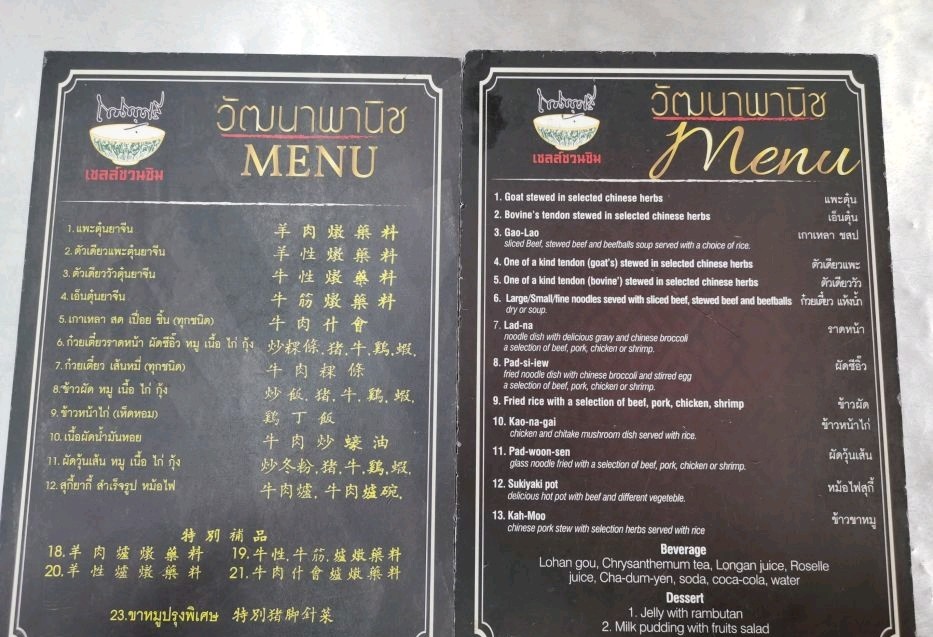 เชลล์ชวนชิม
วัฒนาพานิช
MENU
1. แพะตุ๋นยาจีน 羊肉燉藥料
2. ตัวเดียวแพะตุ๋นยาจีน 羊性燉藥料
3. ตัวเดียววัวตุ๋นยาจีน 牛性燉藥料
4. เอ็นตุ๋นยาจีน 牛筋燉藥料
5. เกาเหลา สด เปื่อย ชิ้น (ทุกชนิด) 牛肉什會
6. ก๋วยเตี๋ยวราดหน้า ผัดซีอิ๊ว หมู เนื้อ ไก่ กุ้ง 炒粿條.猪.牛.鷄.蝦.
7. ก๋วยเตี๋ยว เส้นหมี่ (ทุกชนิด) 牛肉粿條
8. ข้าวผัด หมู เนื้อ ไก่ กุ้ง 炒飯.猪.牛.鷄.蝦.
9. ข้าวหน้าไก่ (เห็ดหอม) 鷄丁飯
10. เนื้อผัดน้ำมันหอย 牛肉炒蠔油
11. ผัดวุ้นเส้น หมู เนื้อ ไก่ กุ้ง 炒冬粉.猪.牛.鷄.蝦
12. สุกี้ยากี้ สำเร็จรูป หม้อไฟ 牛肉爐.牛肉爐碗.
特別補品
18.羊肉爐燉藥料 19.牛性.牛筋.爐燉藥料
20.羊性爐燉藥料 21.牛肉什會爐燉藥料
23.ขาหมูปรุงพิเศษ 特別猪脚針菜
เชลล์ชวนชิม
วัฒนาพานิช
Menu
1. Goat stewed in selected chinese herbs แพะตุ๋น
2. Bovine's tendon stewed in selected chinese herbs เอ็นตุ๋น
3. Gao-Lao เกาเหลา ชสป
sliced Beef, stewed beef and beefballs soup served with a choice of rice.
4. One of a kind tendon (goat's) stewed in selected chinese herbs ตัวเดียวแพะ
5. One of a kind tendon (bovine') stewed in selected chinese herbs ตัวเดียววัว
6. Large/Small/fine noodles seved with sliced beef, stewed beef and beefballs ก๋วยเตี๋ยว แห้งน้ำ
dry or soup.
7. Lad-na ราดหน้า
noodle dish with delicious gravy and chinese broccoli
a selection of beef, pork, chicken or shrimp.
8. Pad-si-iew ผัดซีอิ๊ว
fried noodle dish with chinese broccoli and stirred egg
a selection of beef, pork, chicken or shrimp.
9. Fried rice with a selection of beef, pork, chicken, shrimp ข้าวผัด
10. Kao-na-gai ข้าวหน้าไก่
chicken and chitake mushroom dish served with rice.
11. Pad-woon-sen ผัดวุ้นเส้น
glass noodle fried with a selection of beef, pork, chicken or shrimp.
12. Sukiyaki pot หม้อไฟสุกี้
delicious hot pot with beef and different vegeteble.
13. Kah-Moo ข้าวขาหมู
chinese pork stew with selection herbs served with rice
Beverage
Lohan gou, Chrysanthemum tea, Longan juice, Roselle
juice, Cha-dum-yen, soda, coca-cola, water
Dessert
1. Jelly with rambutan
2. Milk pudding with fruits salad